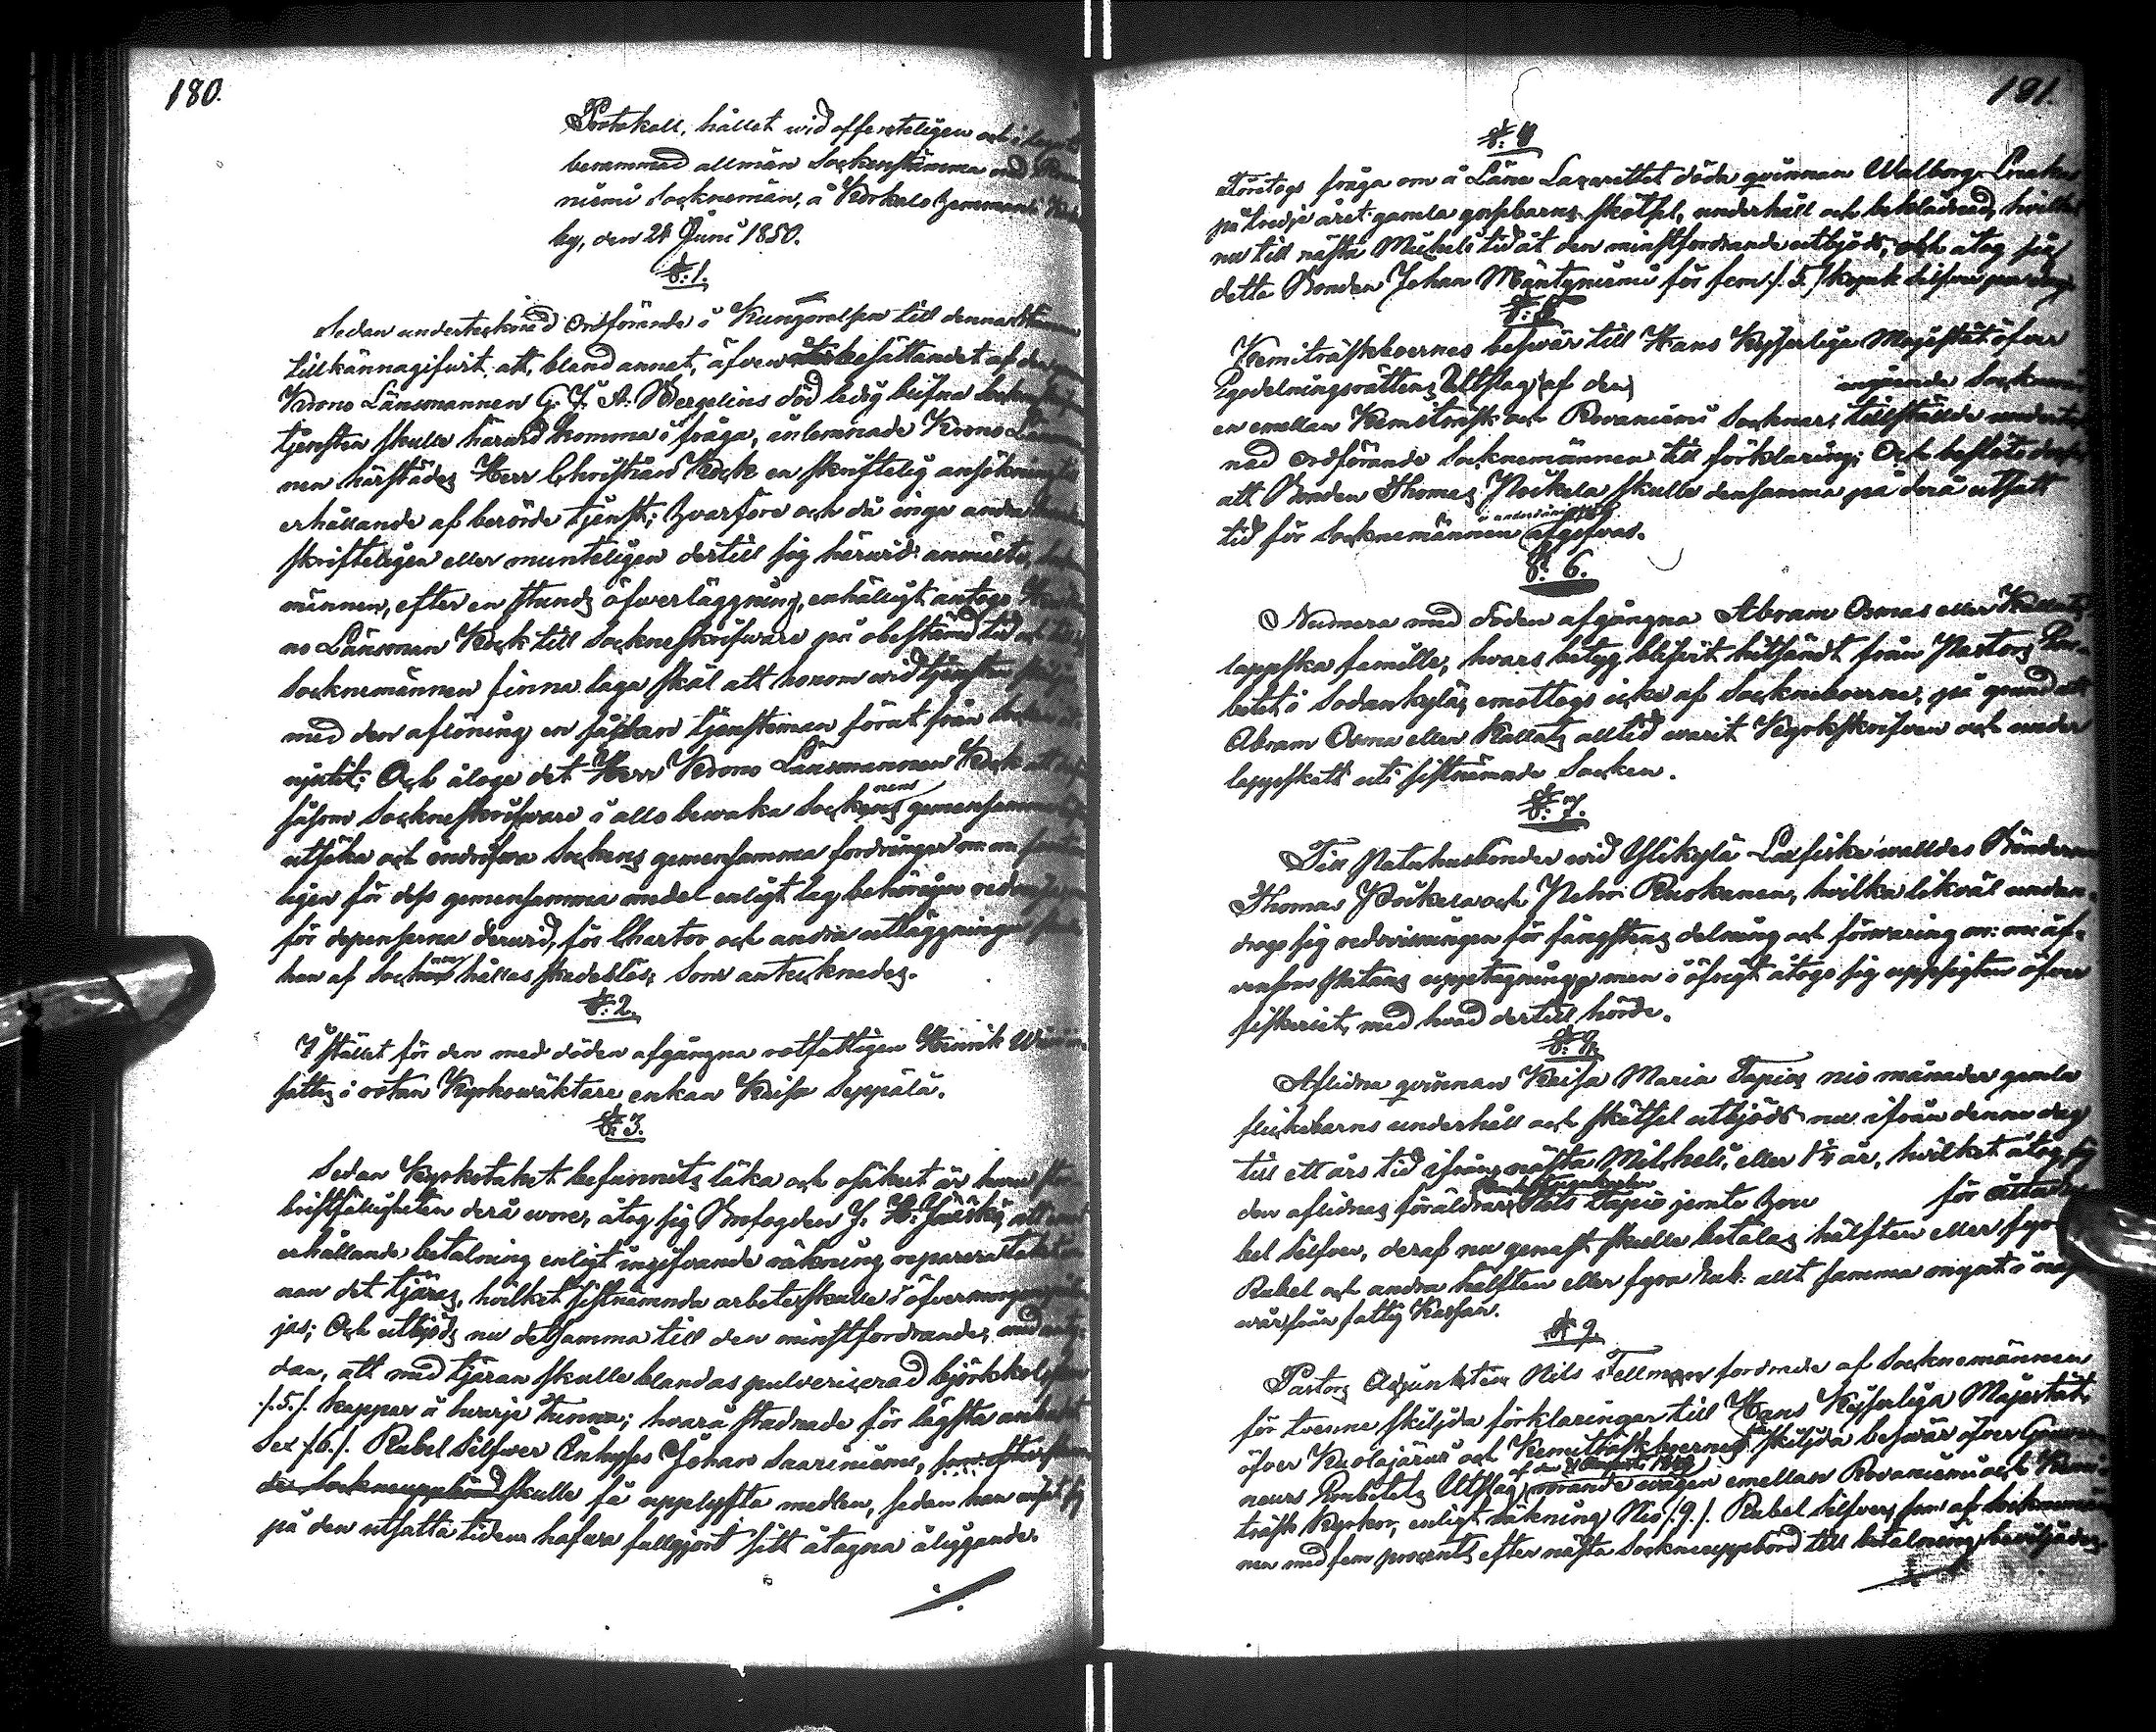 180.
Protokoll, hållet wid offenteligen och i laga
berammad allmän Sockenstämma med
niemi Socknemän, å Korkalo hemman i
by, den 24 Juni 1850.
§. 1.
Sedan undertecknad ordförande i Kungörelsen till denna Stämma
tillkännagifwit, att, bland annat, äfwen återbesättandet af den genom
Krono Länsmannen G. F. A. Bergelins död ledig blifna Sockneskrifvare
tjensten skulle härwid komma i fråga, inlemnade Krono Länsman
nen härstädes Herr Christian Kock en skriftelig ansökning till
erhållande af berörde tjenst; hvarföre och då inga andra
skrifteligen eller munteligen dertill sig härwid anmälte,
männen, efter en stunds öfwerläggning, enhälligt antogo Kro-
no Länsman Kock till Sockneskrifware på obestämd tid och till
Socknemännen finna laga skäl att honom wid tjensten
med den aflöning en sådan tjensteman förut från Socken
njutit; Och ålage det Herr Krono Länsmannen Kock att
såsom Sockneskrifware i allo bewaka Socknens gemensamma
utsöka och indrifwa Sockens gemensamma fordringar m. m.
ligen för dess gemensamma medel enligt lag behörigen
för depenserna derwid, för Chartor och andra utläggningar
han af Socknen hållas skadeslös; Som antecknades.
§. 2.
I stället för den med döden afgångna rotfattigen Hinrik
sattes i rotan Kyrkowäktare enkan Kaisa Seppälä.
§. 3.
Sedan Kyrkotaket befunnits läka och osäkert är huru stor
bristfälligheten derå wore, åtog sig Brofogden J. H. Jääskö att emot
erhållande betalning enligt ingifvande räkning reparera taket
nan det tjäras, hvilket sistnämnda arbete skulle i öfvermorgon
jas; Och utbjöds nu detsamma till den minstfordrande, med
dan, att med tjäran skulle blandas pulveriserad björkkol, fem
/.5./ kappar å hwarje tunna; hvarå stadnade för lägsta anbudet
Sex /.6./ Rubel Silfwer Inhyses Johan Saariniemi, som efter
de Sockneuppbörd skulle få upplyfta medlen, sedan han
på den utsatta tiden hafwa fullgjort sitt åtagna åliggande.
181.
§. 4
Företogs fråga om å Läne Lazarettet döda qvinnan Walborg
på tredje året gamla gossebarns skötsel, underhåll och beklädnad, hvilket
nu till nästa Michelstid åt den minstfordrande utbjöds; och åtog sig
detta Bonden Johan Mäntyniemi för fem /.5./ kopek silfver per dag
§. 5
Kemiträskboernes beswär till Hans Kejserliga Majestät öfver
Egodelningsrättens Utslag af den angående Sockne
en emellan Kemiträsk och Rovaniemi Socknar, tillställde underteck
nad ordförande Socknemännen till förklaring; Och beslöts
att Bonden Thomas Poikela skulle densamma på derå utsatt
tid för Socknemännen i underdånighet afgifvas.
§. 6.
Numera med döden afgångna Abram Oemas eller Kallatis
lappska familie, hvars betyg blifvit hitsändt från Pastors Em-
betet i Sodankylä, emottogs icke af Sockneboerne, på grund att
Abram Oema eller Kallatis alltid warit Kyrkskrifven och under
lappskatt uti sistnämnde Socken.
§. 7.
Till Patahusbonder wid Ylikylä Laxfiske walldes Bönderna
Thomas Poikela och Petri Ruokanen, hvilka likväl undan-
drogo sig redovisningen för fångstens delning och förwaring m: m: äf-
vensom Patans upptagning, men i öfrigt åtogo sig uppsigten öfver
fiskeriet, med hvad dertill hörde.
§. 8.
Aflidna qvinnan Kaisa Maria Tapios nio månader gamla
flickebarns underhåll och skötsel utbjöds nu ifrån denna dag
till ett års tid ifrån nästa Michels, eller 1¼ år, hvilket åtog sig
den aflidnas föräldrar, Nils Tapio jemte hon för åtta Ru-
bel Silfver, deraf nu genast skulle betalas hälften eller fyra
Rubel och andra hälften eller fyra Rub: allt samma
wår från fattig Kassan.
§. 9.
Pastors Adjunkten Nils Fellman fordrade af Socknemännen
för twenne skiljda förklaringar till Hans Kejserliga Majestät,
öfver Kuolajärvi och Kemiträskboernes skiljda beswär öfver Guver-
neurs Embetets Utslag af den Augusti 1849 rörande wägen emellan Rovaniemi och Kemi-
träsk Kyrkor, enligt räkning Nio /.9./ Rubel Silfver, som af Socknemän
nen med fem procents efter nästa Sockneuppbörd till betalning beviljades.